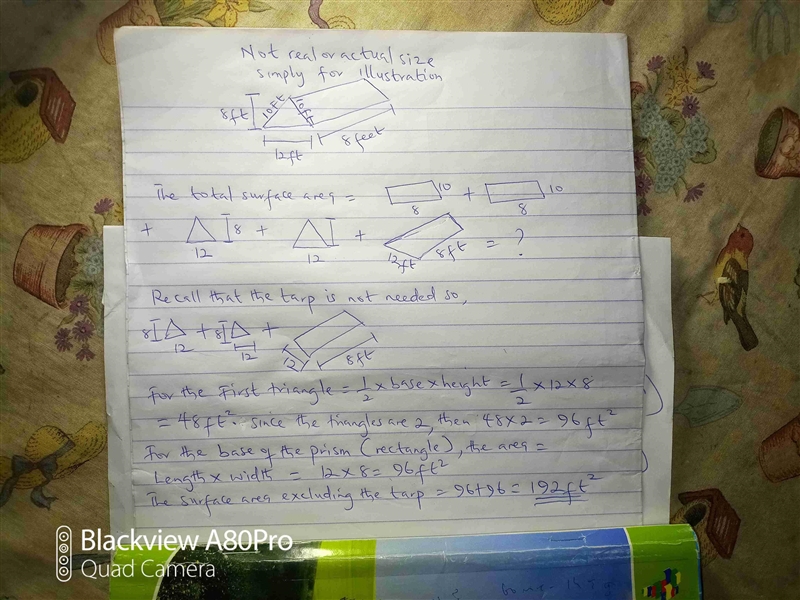 Not real or actual size
simply for illustration
8ft 10ft 10ft
12ft 8 feet
The total surface area = 10 + 10
8 8
+ 8 + + = ?
12 12 12ft 8ft
Recall that the tarp is not needed so,
8 + 8 +
12 12 12 8ft
For the First triangle = 1/2 × base × height = 1/2 × 12 × 8
= 48ft². Since the triangles are 2, then 48×2 = 96ft²
For the base of the prism (rectangle), the area =
Length × width = 12 × 8 = 96ft²
The surface area excluding the tarp = 96+96 = 192ft²
Blackview A80Pro
Quad Camera